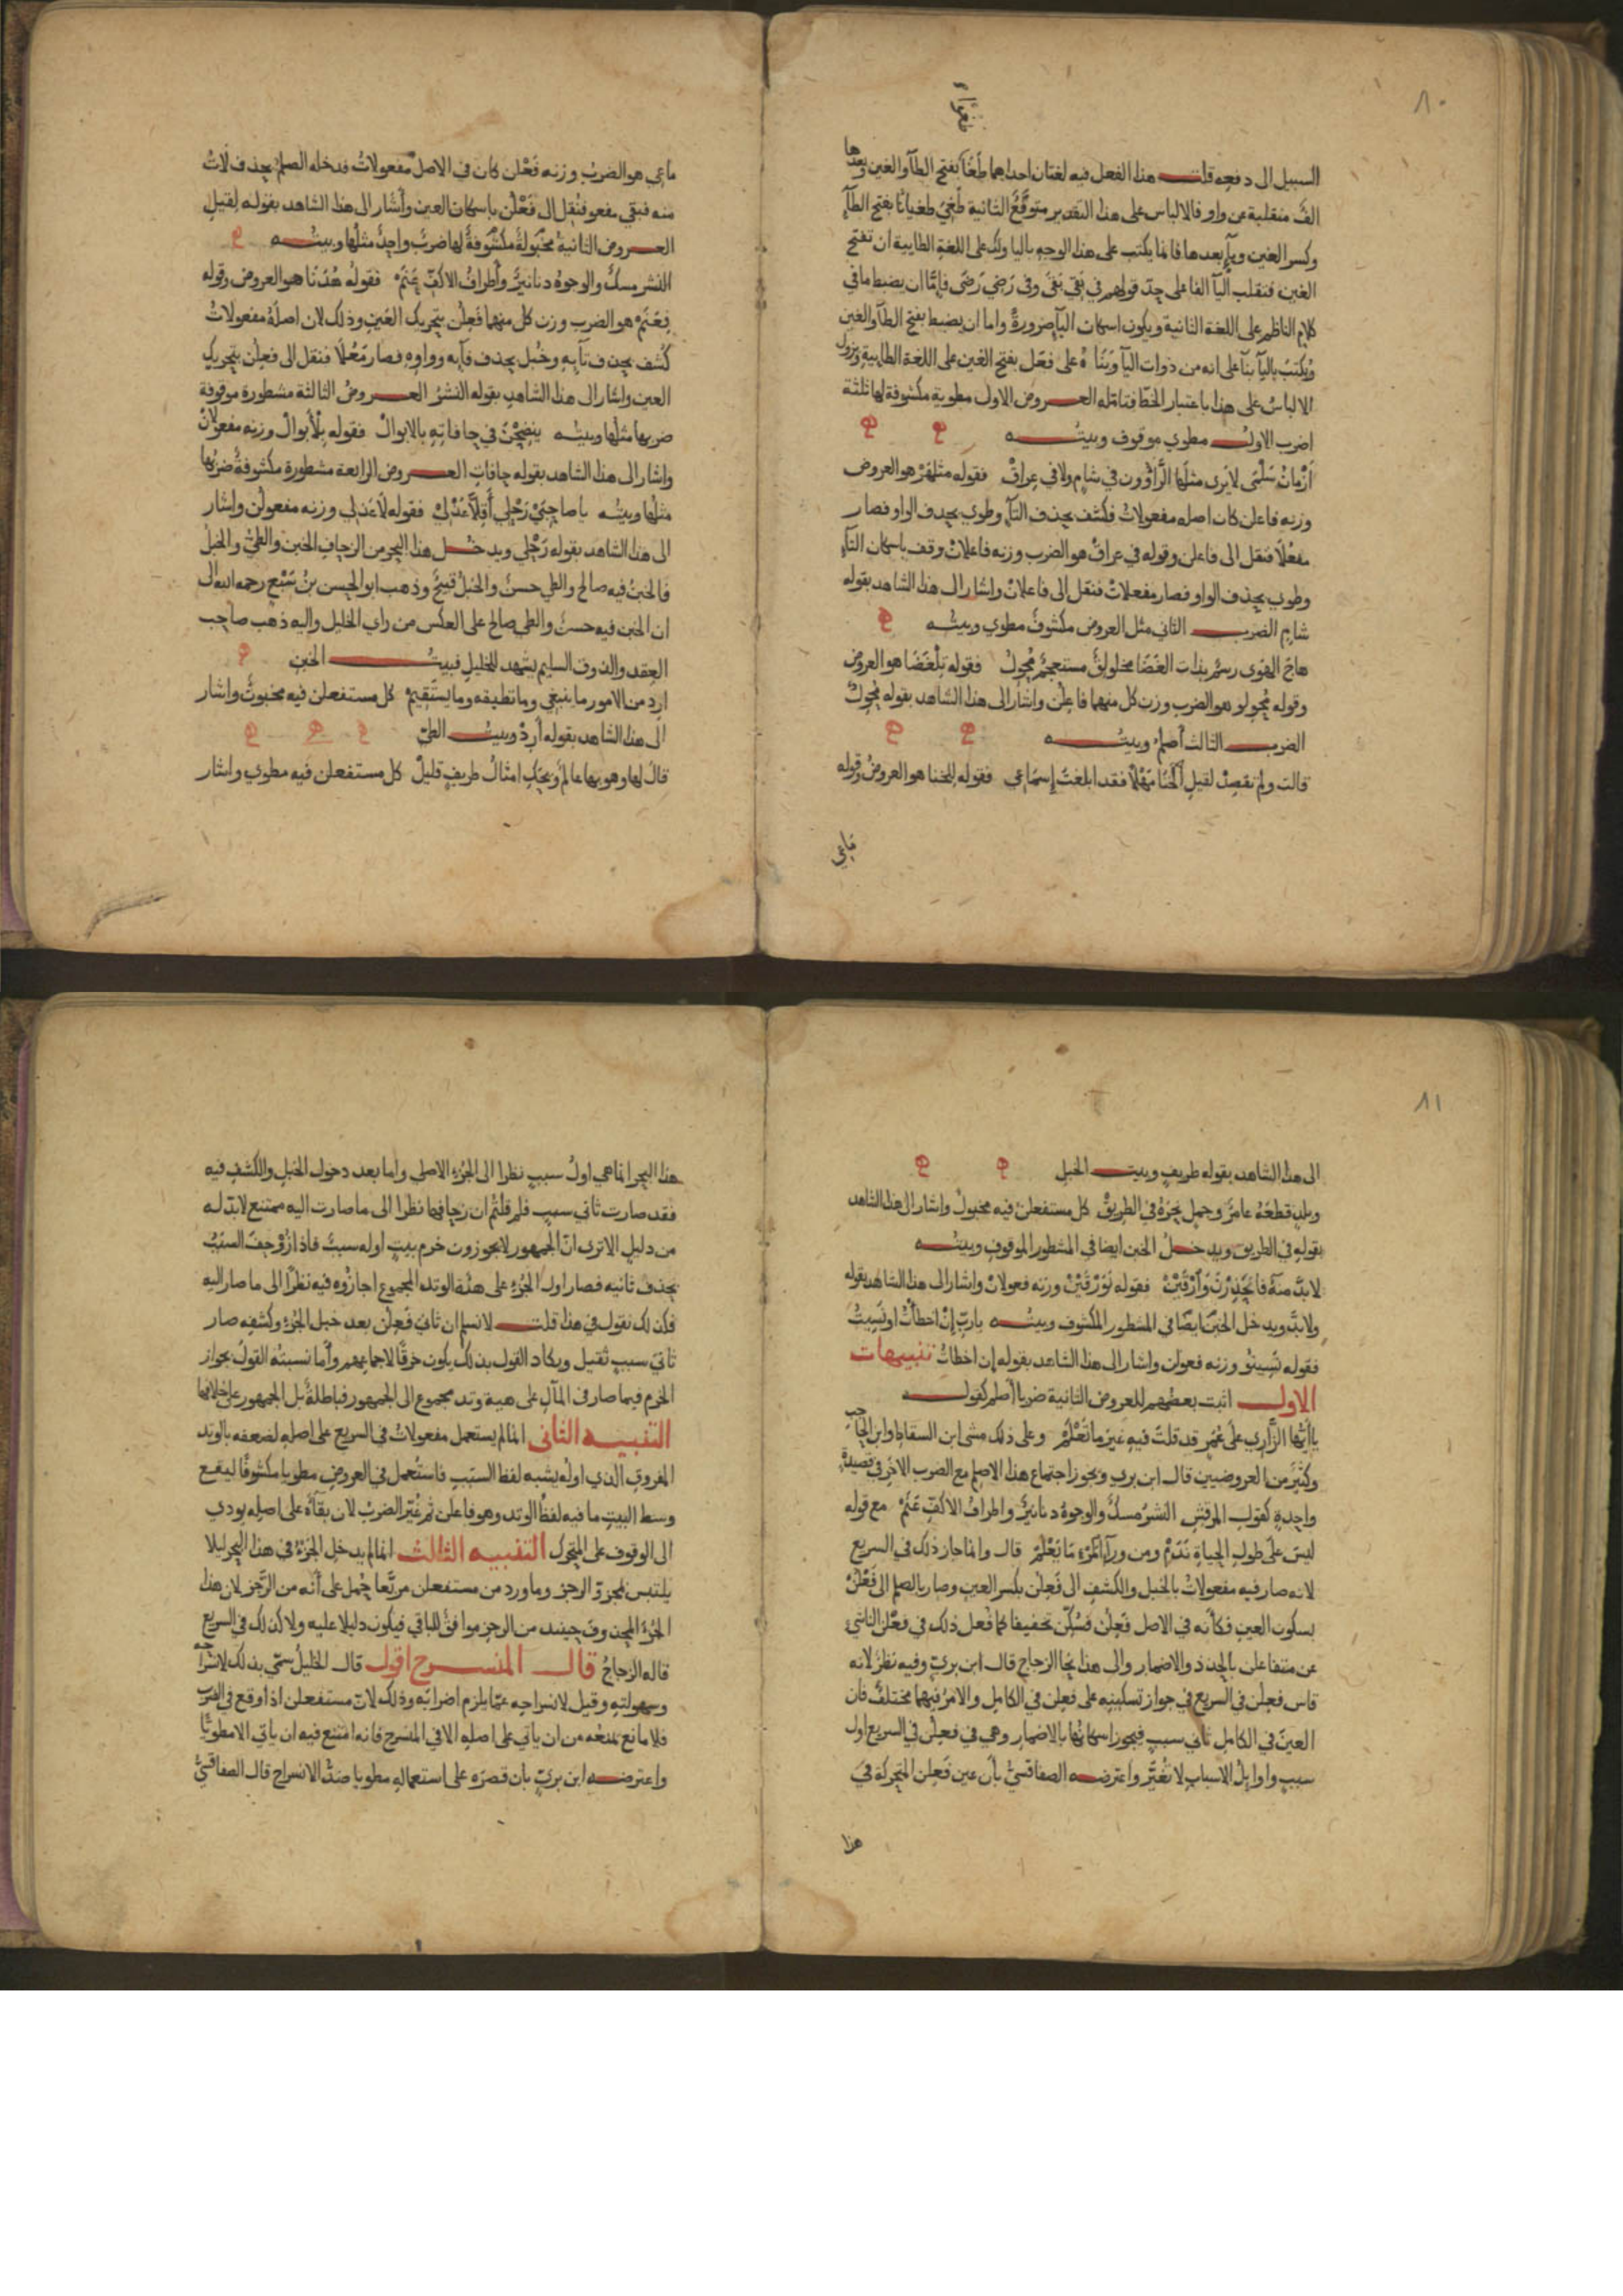 ٨٠
السبيل الى دفعه قلت هذا الفعل فيه لغتان احداهما طَغَا بفتح الطآ والغين وبعدها
الف منقلبة عن واو فالالباس على هذا التقدير متوقَّعٌ الثانية طَغِيَ طغيانًا بفتح الطآ
وكسر الغين ويآء بعدها فانما يكتب على هذا الوجه باليا ولك على اللغة الطايية ان تفتح
الغين فنقلب اليآ الفا على حدّ قولهم في بَقِيَ بَقَى وفى رَضِيَ رَضَى فإمّا ان يضبط ما في
كلام الناظم على اللغة الثانية ويكون اسكان اليآ ضرورةً واما ان يضبط بفتح الطآ والغين
ويُكتَبَ باليآ بنآ على انه من ذوات اليآ وَبَنَاهُ على فعَل بفتح الغين على اللغة الطايية ويزول
الالباسُ على هذا باعتبار الخطّ فتامّله العروض الاولى مطوية مكشوفة لها ثلثة
اضرب الاول مطوي موقوف وبيته
أَزْمَانُ سَلْمَى لا يَرى مثلَها الرَّآؤون في شامٍ ولا في عِراقْ فقوله مثلَهَرْ هو العروض
وزنه فاعلن كان اصله مفعولاتُ فكشف بحذف التآء وطوي بحذف الواو فصار
مفعُلَا فنقل الى فاعلن وقوله في عراقْ هو الضرب وزنه فاعلانْ وقف باسكان التآء
وطوي بحذف الواو فصار مفعلاتْ فنقل الى فاعلانْ واشار الى هذا الشاهد بقوله
شامٍ الضرب الثاني مثل العروض مكشوفٌ مطوي وبيته
هاجَ الهوَى رسمٌ بذات الغَضَا مخلولِقٌ مستعجِمٌ مُحْوِلُ فقوله تلغَضَا هو العروض
وقوله مُحْوِلُو هو الضرب وزن كل منهما فاعِلن واشار الى هذا الشاهد بقوله مُحْوِلٌ
الضرب الثالث أصلمُ وبيته
قالت ولم تقصِدْ لقيلِ الْخَنَا مَهْلًا فقد ابلغتَ إسمَاعِي فقوله للخنا هو العروض وقوله
ماعي
ماعِي هو الضرب وزنه فَعْلن كان في الاصل مفعولاتُ فدخله الصلمُ بحذف لَاتُ
منه فبقي مفعو فنُقل الى فَعْلُن باسكان العين وأشار الى هذا الشاهد بقوله لقيلِ
العروض الثانية مخبولةٌ مكشوفةٌ لها ضربٌ واحدٌ مثلُها وبيته
النشر مسكٌ والوجوهُ دنانيرٌ وأطرافُ الاكفِّ عَنَمْ فقولُه هُدَنَا هو العروض وقوله
فِعَنَمْ هو الضرب وزن كل منهما فَعِلُن بتحريك العَينِ وذلك لان اصلَهُ مفعولاتُ
كُشف بحذف تآيِهِ وخُبل بحذف فآيه وواوِهِ فصار مَعُلَا فنقل الى فعِلُن بتحريك
العين واشار الى هذا الشاهدِ بقوله النشرُ العروضُ الثالثة مشطورة موقوفة
ضربها مثلُها وبيته ينضِحْنَ في حافاتِهِ بالابوالْ فقوله بِلْأَبوالْ وزنه مفعولانْ
واشار الى هذا الشاهد بقوله حافاتِ العروض الرابعة مشطورة مكشوفةٌ ضربُها
مثلُها وبيتُه يا صاحِبَيْ رَحْلِي أَقِلَّا عَذْلِيْ فقوله لَاعَذلي وزنه مفعولن واشار
الى هذا الشاهد بقوله رَحْلِي ويدخل هذا البحرَ من الزحاف الخبن والطيُّ والخبلُ
فالخبنُ فيه صالح والطي حسنٌ والخبلُ قبيحٌ وذهب ابو الحسن بنُ سَبُعٍ رحمه الله الى
ان الخبن فيه حسنٌ والطي صالح على العكس من راي الخليل واليه ذهب صاحب
العِقد والذوق السليم يشهد للخليل فبيت الخبن
ارِد من الامور ما ينبغِي وما تطيقه وما يستَقِيمْ كل مستفعلن فيه مخبونٌ واشار
الى هذا الشاهد بقوله أرِدْ وبيت الطيّ
قالَ لها وهو بها عالمٌ وَيْحَكِ امثالُ طريفٍ قليلْ كل مستفعلن فيه مطوي واشار
٨١
الى هذا الشاهد بقوله طريفٍ وبيت الخبل
وبلدٍ قطعَهُ عامرٌ وجملٍ نحَرَهُ في الطريقْ كل مستفعلن فيه مخبولٌ واشار الى هذا الشاهد
بقوله في الطريق ويدخل الخبن ايضا في المشطور الموقوف وبيته
لا بدَّ منهُ فانحَدِرْنَ وَارْقَيْنْ فقوله نَوَرْقَيْنْ وزنه فعولانْ واشار الى هذا الشاهد بقوله
ولا بدّ ويدخل الخبن ايضًا في المشطور المكشوف وبيته ياربِّ إنْ اخطأتُ او نسِيتُ
فقوله نَسِيتُو وزنه فعولن واشار الى هذا الشاهد بقوله إن اخطأتُ تنبيهات
الاول اثبت بعضهم للعروض الثانية ضربا أصلم كقوله
يا ايُّها الزَّارِي على عُمَرٍ قد قلتَ فيهِ غيرَ ما تَعْلَمْ وعلى ذلك مشى ابن السقاط وابن الحاجب
وكثيرٌ من العروضيين قال ابن بري ويجوز اجتماع هذا الاصلم مع الضرب الآخر في قصيدةٍ
واحدةٍ كقول المرقش النشرُ مسكٌ والوجوهُ دنانيرٌ واطرافُ الاكفِّ عَنَمْ مع قوله
ليسَ على طولِ الحياةِ نَدَمْ ومن ورآءِ المَرْءِ مَا يَعْلَمْ قال وانما جاز ذلك في السريع
لانه صار فيه مفعولاتُ بالخبل والكشف الى فَعِلن بكسر العين وصار بالصلم الى فَعْلُنْ
بسكون العين فكأنه في الاصل فَعِلُن فَسُكِّنَ تخفيفا كما فُعل ذلك في فعْلن الناشئِ
عن متفاعلن بالحذذ والاضمار والى هذا نحا الزجاج قال ابن بريّ وفيه نظرٌ لانه
قاس فعِلن في السريع في جواز تسكينِهِ على فعِلن في الكامل والامرُ فيهما مختلفٌ فان
العينَ في الكامل ثاني سببٍ فيجوز اسكانُها بالاضمار وهي في فعِلن في السريع اول
سببٍ واوايلُ الاسبابِ لا تغيَّر واعترضه الصفاقسيُّ بأن عين فعِلن المتحركة في
هذا
هذا البحر انما هي اولُ سببٍ نظرا الى الجُزءِ الاصلي واما بعد دخول الخبل والكشف فيه
فقد صارت ثاني سببٍ فلم قلتُم ان زحافها نظرا الى ما صارت اليه ممتنع لا بدّ له
من دليلٍ الا ترى انّ الجمهور لا يجوزون خرم بيتٍ اوله سببٌ فاذا زُوحِفَ السببُ
بحذف ثانيه فصار اول الجزءِ على هيئة الوتد المجموع اجازُوه فيه نظرًا الى ما صار اليه
فكذلك نقول في هذا قلت لا نسلم ان ثانيَ فعِلن بعد خبل الجزء وكشفِه صار
ثانيَ سببٍ ثقيل ويكاد القول بذلك يكون خرقًا لاجماعهم وأما نسبتُه القولَ بجواز
الخرم فيما صار في المآل على هيئة وتد مجموع الى الجمهور فباطلةٌ بل الجمهور على خلافها
التنبيه الثانى انما لم يستعمل مفعولاتُ في السريع على اصله لضعفه بالوتد
المفروق الذي اولُه يشبه لفظ السببِ فاستُعمل في العروض مطويا مكشوفًا ليقع
وسط البيت ما فيه لفظُ الوتد وهو فاعلن ثم غُيّر الضربُ لان بقآءَه على اصلِه يودي
الى الوقوف على المتحرك التنبيه الثالث انما لم يدخل الجَزءُ في هذا البحر ليلا
يلتبس بمجزوّ الرجز وما ورد من مستفعلن مربّعا حُمل على أنّه من الرَّجَز لان هذا
الجزءَ المحذوفَ حينيذ من الرجز موافقٌ للباقي فيكون دليلا عليه ولا كذلك في السريع
قاله الزجاجُ قال المنسرح اقول قال الخليلُ سمّي بذلك لانسراحه
وسهولتِهِ وقيل لانسراحه عمّا يلزم اضرابَه وذلك لان مستفعلن اذا وقع في الضرب
فلا مانع يمنعُه من ان ياتي على اصله الا في المنسرح فانه امتنع فيه ان ياتي الا مطويًّا
واعترضه ابن بريّ بان قصرَه على استعماله مطويا ضدُّ الانسراح قال الصفاقسيُّ